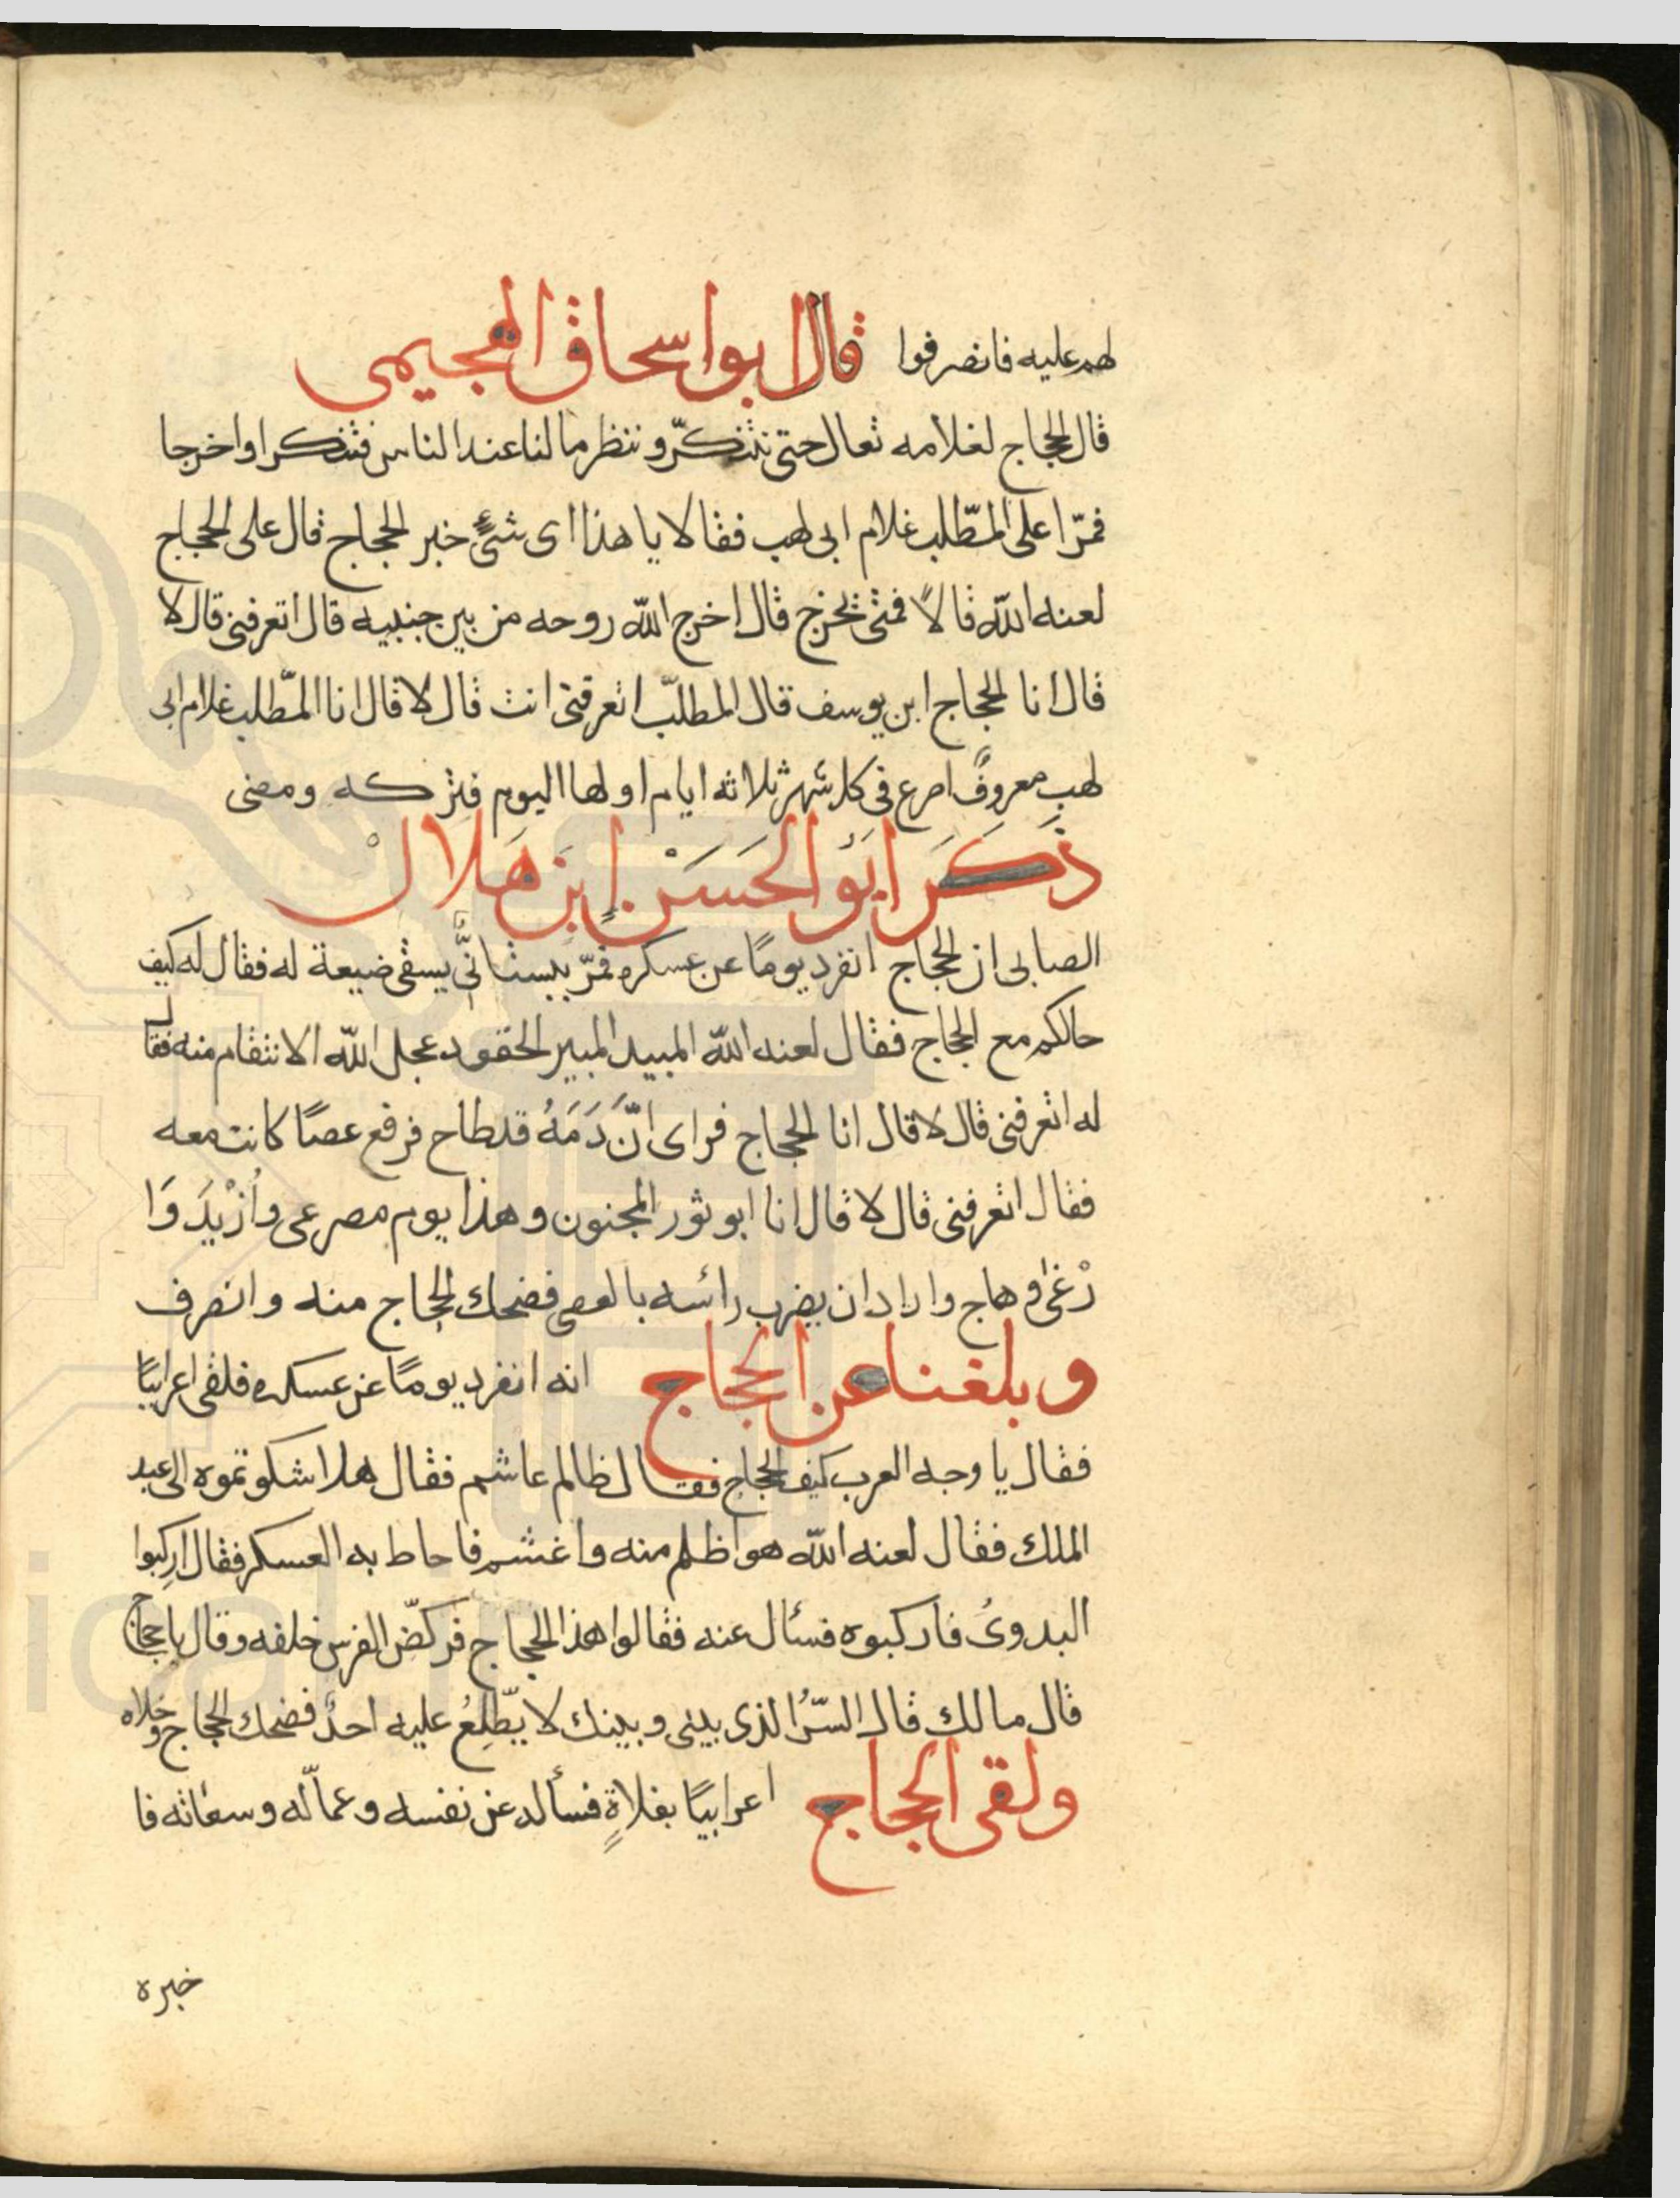 لهم عليه فانصرفوا قال ابو اسحاق الهجيمى
قال الحجاج لغلامه تعال حتى نتنكّر وننظر مالنا عند الناس فتنكرا واخرجا
فمرّا على المطّلب غلام ابى لهب فقالا يا هذا اى شىءٍ خبر الحجاج قال على الحجاج
لعنه اللّه قالا فمتى يخرج قال اخرج اللّه روحه من بين جنبيه قال اتعرفنى قال لا
قال انا الحجاج ابن يوسف قال المطلّب اتعرفنى انت قال لا قال انا المطّلب غلام ابى
لهب معروفٌ اصرع فى كل شهر ثلاثه ايام اولها اليوم فتركه ومضى
ذَكَرَ ابَو الحَسَنْ اِبنِ هَلالْ
الصابى ان الحجاج انفرد يومًا عن عسكره فمرّ ببستانىٍّ يسقى ضيعة له فقال له كيف
حالكم مع الحجاج فقال لعنه اللّه المبيد المبير الحقود عجل اللّه الانتقام منه فقال
له اتعرفنى قال لا قال انا الحجاج فراى انَّ دَمَهُ قد طاح فرفع عصًا كانت معه
فقال اتعرفنى قال لا قال انا ابو ثور المجنون وهذا يوم مصرعى وأزْيَدَ وَا
رْغى وهاج واراد ان يضرب رائسه بالعصى فضحك الحجاج منه وانصرف
وبلغنا عن الحجاج انه انفرد يومًا عن عسكره فلقى اعرابيًا
فقال يا وجه العرب كيف الحجاج فقال ظالم غاشم فقال هلا شكوتموه الى عبد
الملك فقال لعنه اللّه هو اظلم منه واغشم فاحاط به العسكر فقال اركِبوا
البدوىُ فاركبوه فسئال عنه فقالوا هذا الحجاج فركضّ الفرس خلفه وقال يا حجاج
قال مالك قال السّرُ الذى بينى وبينك لا يطّلِعُ عليه احدٌ فضحك الحجاج وخلاه
ولقى الحجاج اعرابيًا بفلاةٍ فسأله عن نفسه وعمالّه وسعاته فا
خبره